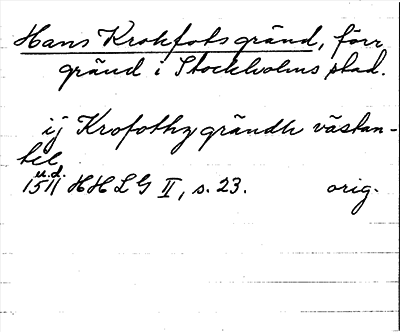 Hans Krokfots gränd, förr
gränd i Stockholms stad.
ij Krofothz grändh västan-
till
u.d.
1511 HHLG II, s. 23. orig.